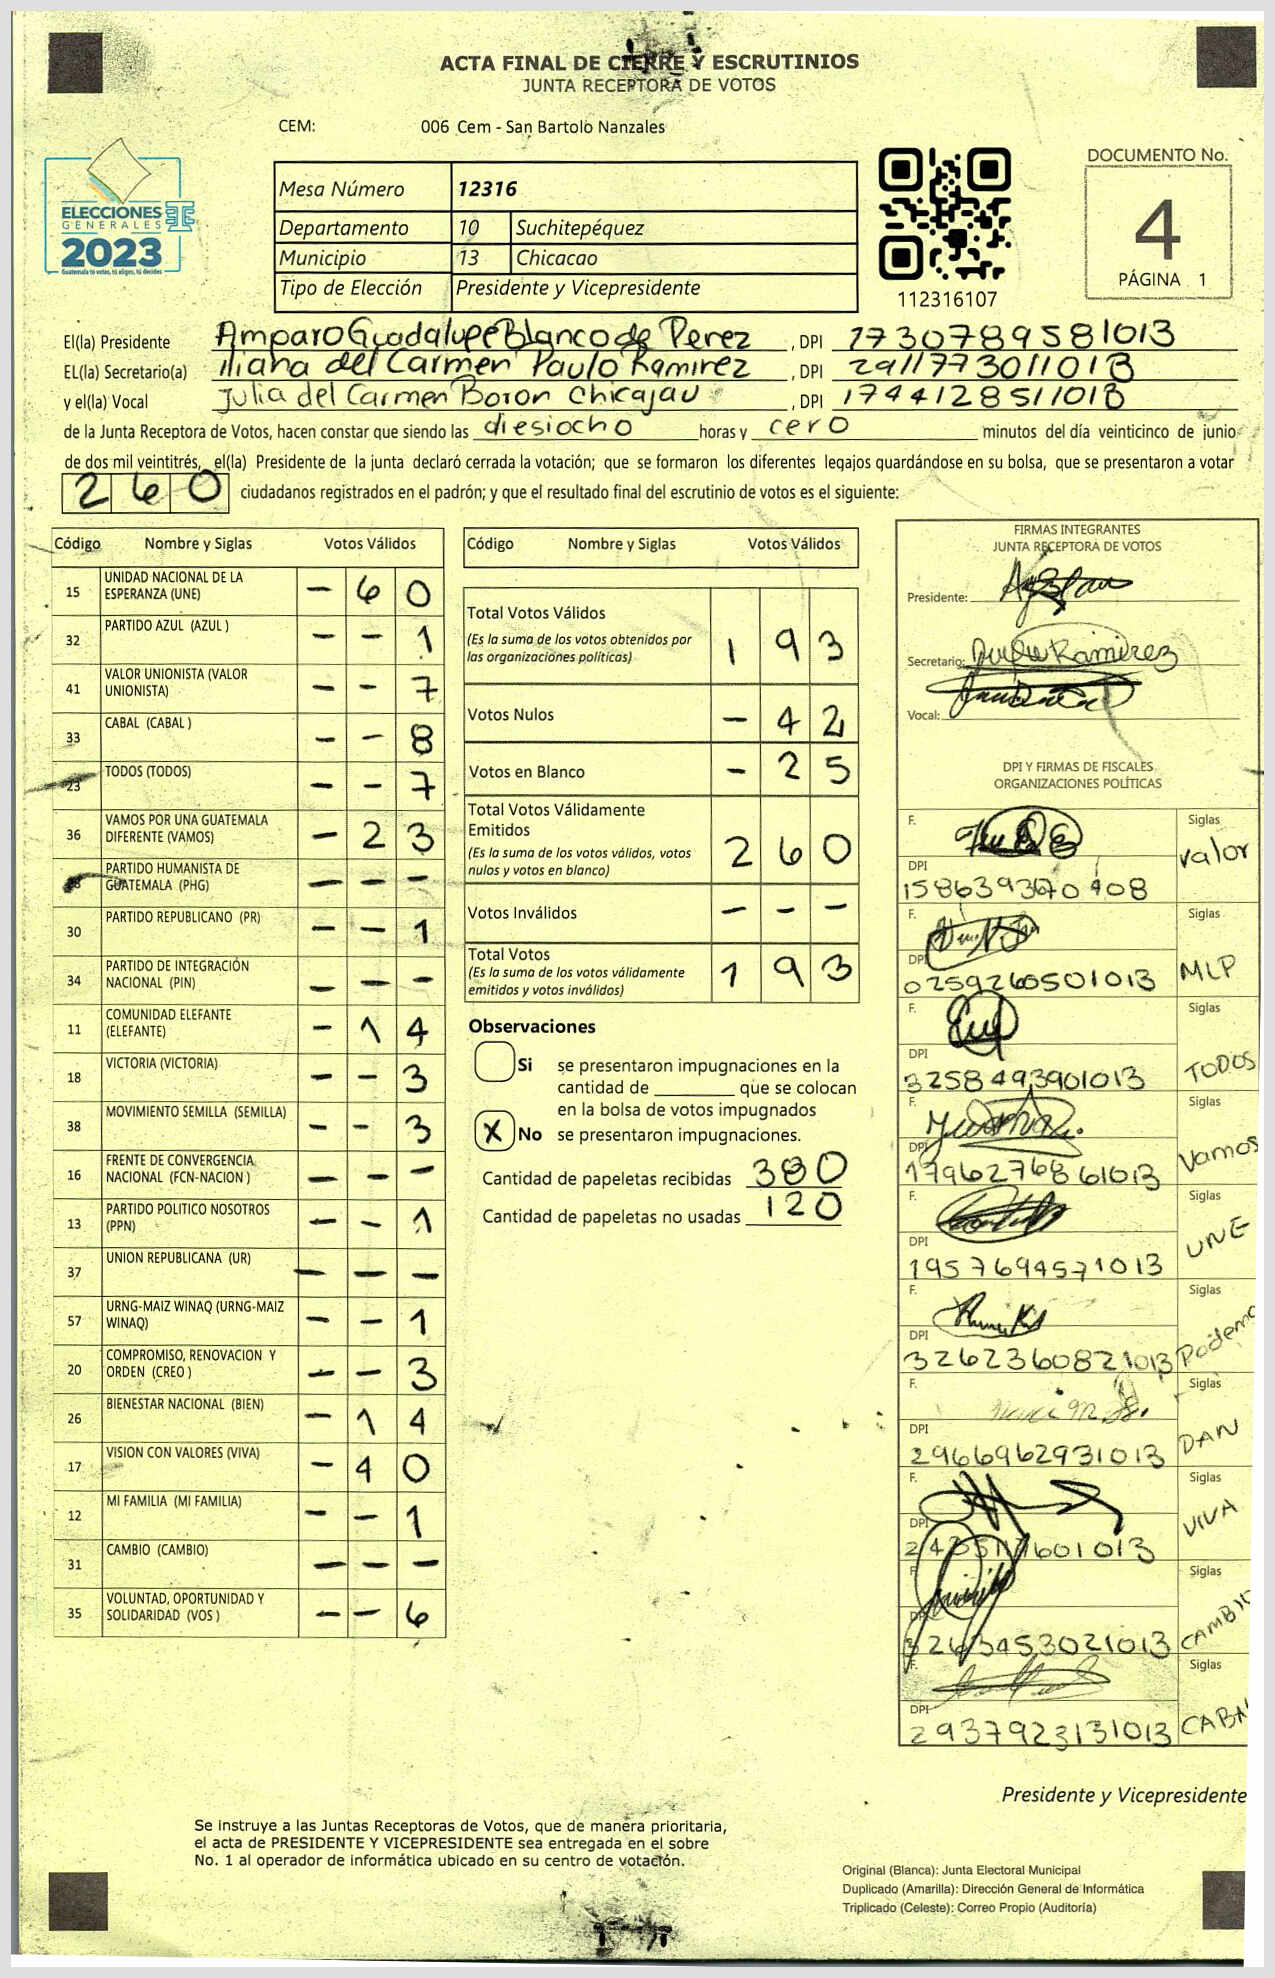 ACTA FINAL DE CIERRE Y ESCRUTINIOS
JUNTA RECEPTORA DE VOTOS
CEM: 006 Cem - San Bartolo Nanzales
ELECCIONES
GENERALES
2023
Guatemala tú votas, tú eliges, tú decides
Mesa Número 12316
Departamento 10 Suchitepéquez
Municipio 13 Chicacao
Tipo de Elección Presidente y Vicepresidente
112316107
DOCUMENTO No.
4
PÁGINA 1
El(la) Presidente Amparo Guadalupe Blanco de Perez, DPI 1730789581013
EL(la) Secretario(a) iliana del Carmen Paulo Ramirez, DPI 2911773011013
y el(la) Vocal Julia del Carmen Boron Chicajau, DPI 1744128511013
de la Junta Receptora de Votos, hacen constar que siendo las diesiocho horas y cero minutos del día veinticinco de junio
de dos mil veintitrés, el(la) Presidente de la junta declaró cerrada la votación; que se formaron los diferentes legajos guardándose en su bolsa, que se presentaron a votar
260 ciudadanos registrados en el padrón; y que el resultado final del escrutinio de votos es el siguiente:
Código Nombre y Siglas Votos Válidos
15 UNIDAD NACIONAL DE LA ESPERANZA (UNE) - 6 0
32 PARTIDO AZUL (AZUL ) - - 1
41 VALOR UNIONISTA (VALOR UNIONISTA) - - 7
33 CABAL (CABAL ) - - 8
23 TODOS (TODOS) - - 7
36 VAMOS POR UNA GUATEMALA DIFERENTE (VAMOS) - 2 3
PARTIDO HUMANISTA DE GUATEMALA (PHG) - - -
30 PARTIDO REPUBLICANO (PR) - - 1
34 PARTIDO DE INTEGRACIÓN NACIONAL (PIN) - - -
11 COMUNIDAD ELEFANTE (ELEFANTE) - 1 4
18 VICTORIA (VICTORIA) - - 3
38 MOVIMIENTO SEMILLA (SEMILLA) - - 3
16 FRENTE DE CONVERGENCIA NACIONAL (FCN-NACION ) - - -
13 PARTIDO POLITICO NOSOTROS (PPN) - - 1
37 UNION REPUBLICANA (UR) - - -
57 URNG-MAIZ WINAQ (URNG-MAIZ WINAQ) - - 1
20 COMPROMISO, RENOVACION Y ORDEN (CREO ) - - 3
26 BIENESTAR NACIONAL (BIEN) - 1 4
17 VISION CON VALORES (VIVA) - 4 0
12 MI FAMILIA (MI FAMILIA) - - 1
31 CAMBIO (CAMBIO) - - -
35 VOLUNTAD, OPORTUNIDAD Y SOLIDARIDAD (VOS ) - - 6
Código Nombre y Siglas Votos Válidos
Total Votos Válidos 1 9 3
(Es la suma de los votos obtenidos por
las organizaciones políticas)
Votos Nulos - 4 2
Votos en Blanco - 2 5
Total Votos Válidamente
Emitidos 2 6 0
(Es la suma de los votos válidos, votos
nulos y votos en blanco)
Votos Inválidos - - -
Total Votos 1 9 3
(Es la suma de los votos válidamente
emitidos y votos inválidos)
Observaciones
Si se presentaron impugnaciones en la
cantidad de ________ que se colocan
en la bolsa de votos impugnados
X No se presentaron impugnaciones.
Cantidad de papeletas recibidas 380
Cantidad de papeletas no usadas 120
FIRMAS INTEGRANTES
JUNTA RECEPTORA DE VOTOS
Presidente:
Secretario: Ramirez
Vocal:
DPI Y FIRMAS DE FISCALES
ORGANIZACIONES POLÍTICAS
F. Siglas valor
DPI
F. Siglas MLP
DPI 0259260501013
F. Siglas TODOS
DPI 3258493901013
F. Siglas Vamos
DPI 1796276861013
F. Siglas UNE
DPI 1957694571013
F. Siglas Podemo
DPI 3262360821013
F. Siglas DAN
DPI 2966962931013
F. Siglas VIVA
DPI
F. Siglas CAMBIO
DPI 3263453021013
F. Siglas CABA
DPI 2937923131013
Presidente y Vicepresidente
Se instruye a las Juntas Receptoras de Votos, que de manera prioritaria,
el acta de PRESIDENTE Y VICEPRESIDENTE sea entregada en el sobre
No. 1 al operador de informática ubicado en su centro de votación.
Original (Blanca): Junta Electoral Municipal
Duplicado (Amarilla): Dirección General de Informática
Triplicado (Celeste): Correo Propio (Auditoría)